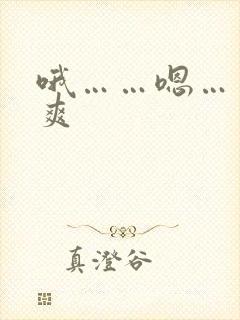 哦……嗯…
爽
真澄谷